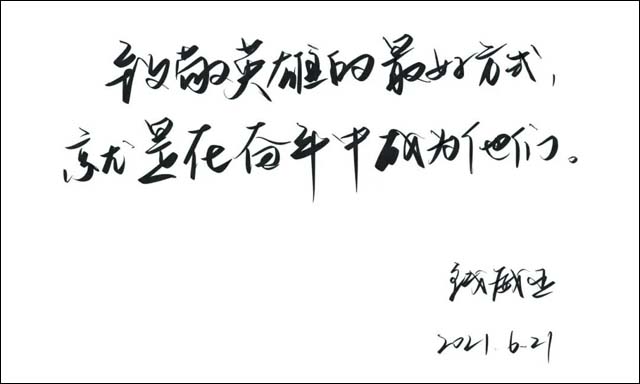 致敬英雄的最好方式，
就是在奋斗中成为他们。
2021.6.21